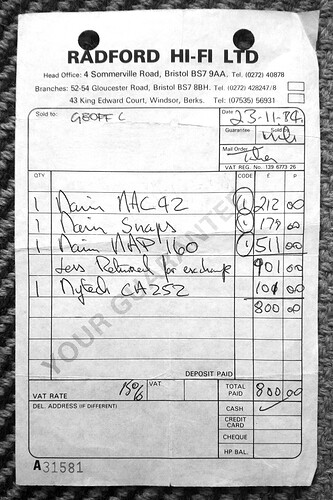 RADFORD HI-FI LTD
Head Office: 4 Sommerville Road, Bristol BS7 9AA. Tel. (0272) 40878
Branches: 52-54 Gloucester Road, Bristol BS7 8BH. Tel. (0272) 428247/8
43 King Edward Court, Windsor, Berks. Tel: (07535) 56931
Sold to: GEOFF C
Date 23-11-84
Guarantee Sold By
Mail Order
VAT REG. No. 139 6773 26
QTY CODE £ P
1 Naim NAC 42 1 212 00
1 Naim Snaps 1 179 00
1 Naim NAP 160 1 511 00
Less Returned for exchange 901 00
1 Nytech CA252 101 00
800 00
YOUR GUARANTEE
DEPOSIT PAID
VAT RATE 15% VAT TOTAL PAID 800.00
DEL. ADDRESS (IF DIFFERENT) CASH
CREDIT CARD
CHEQUE
HP BAL.
A31581